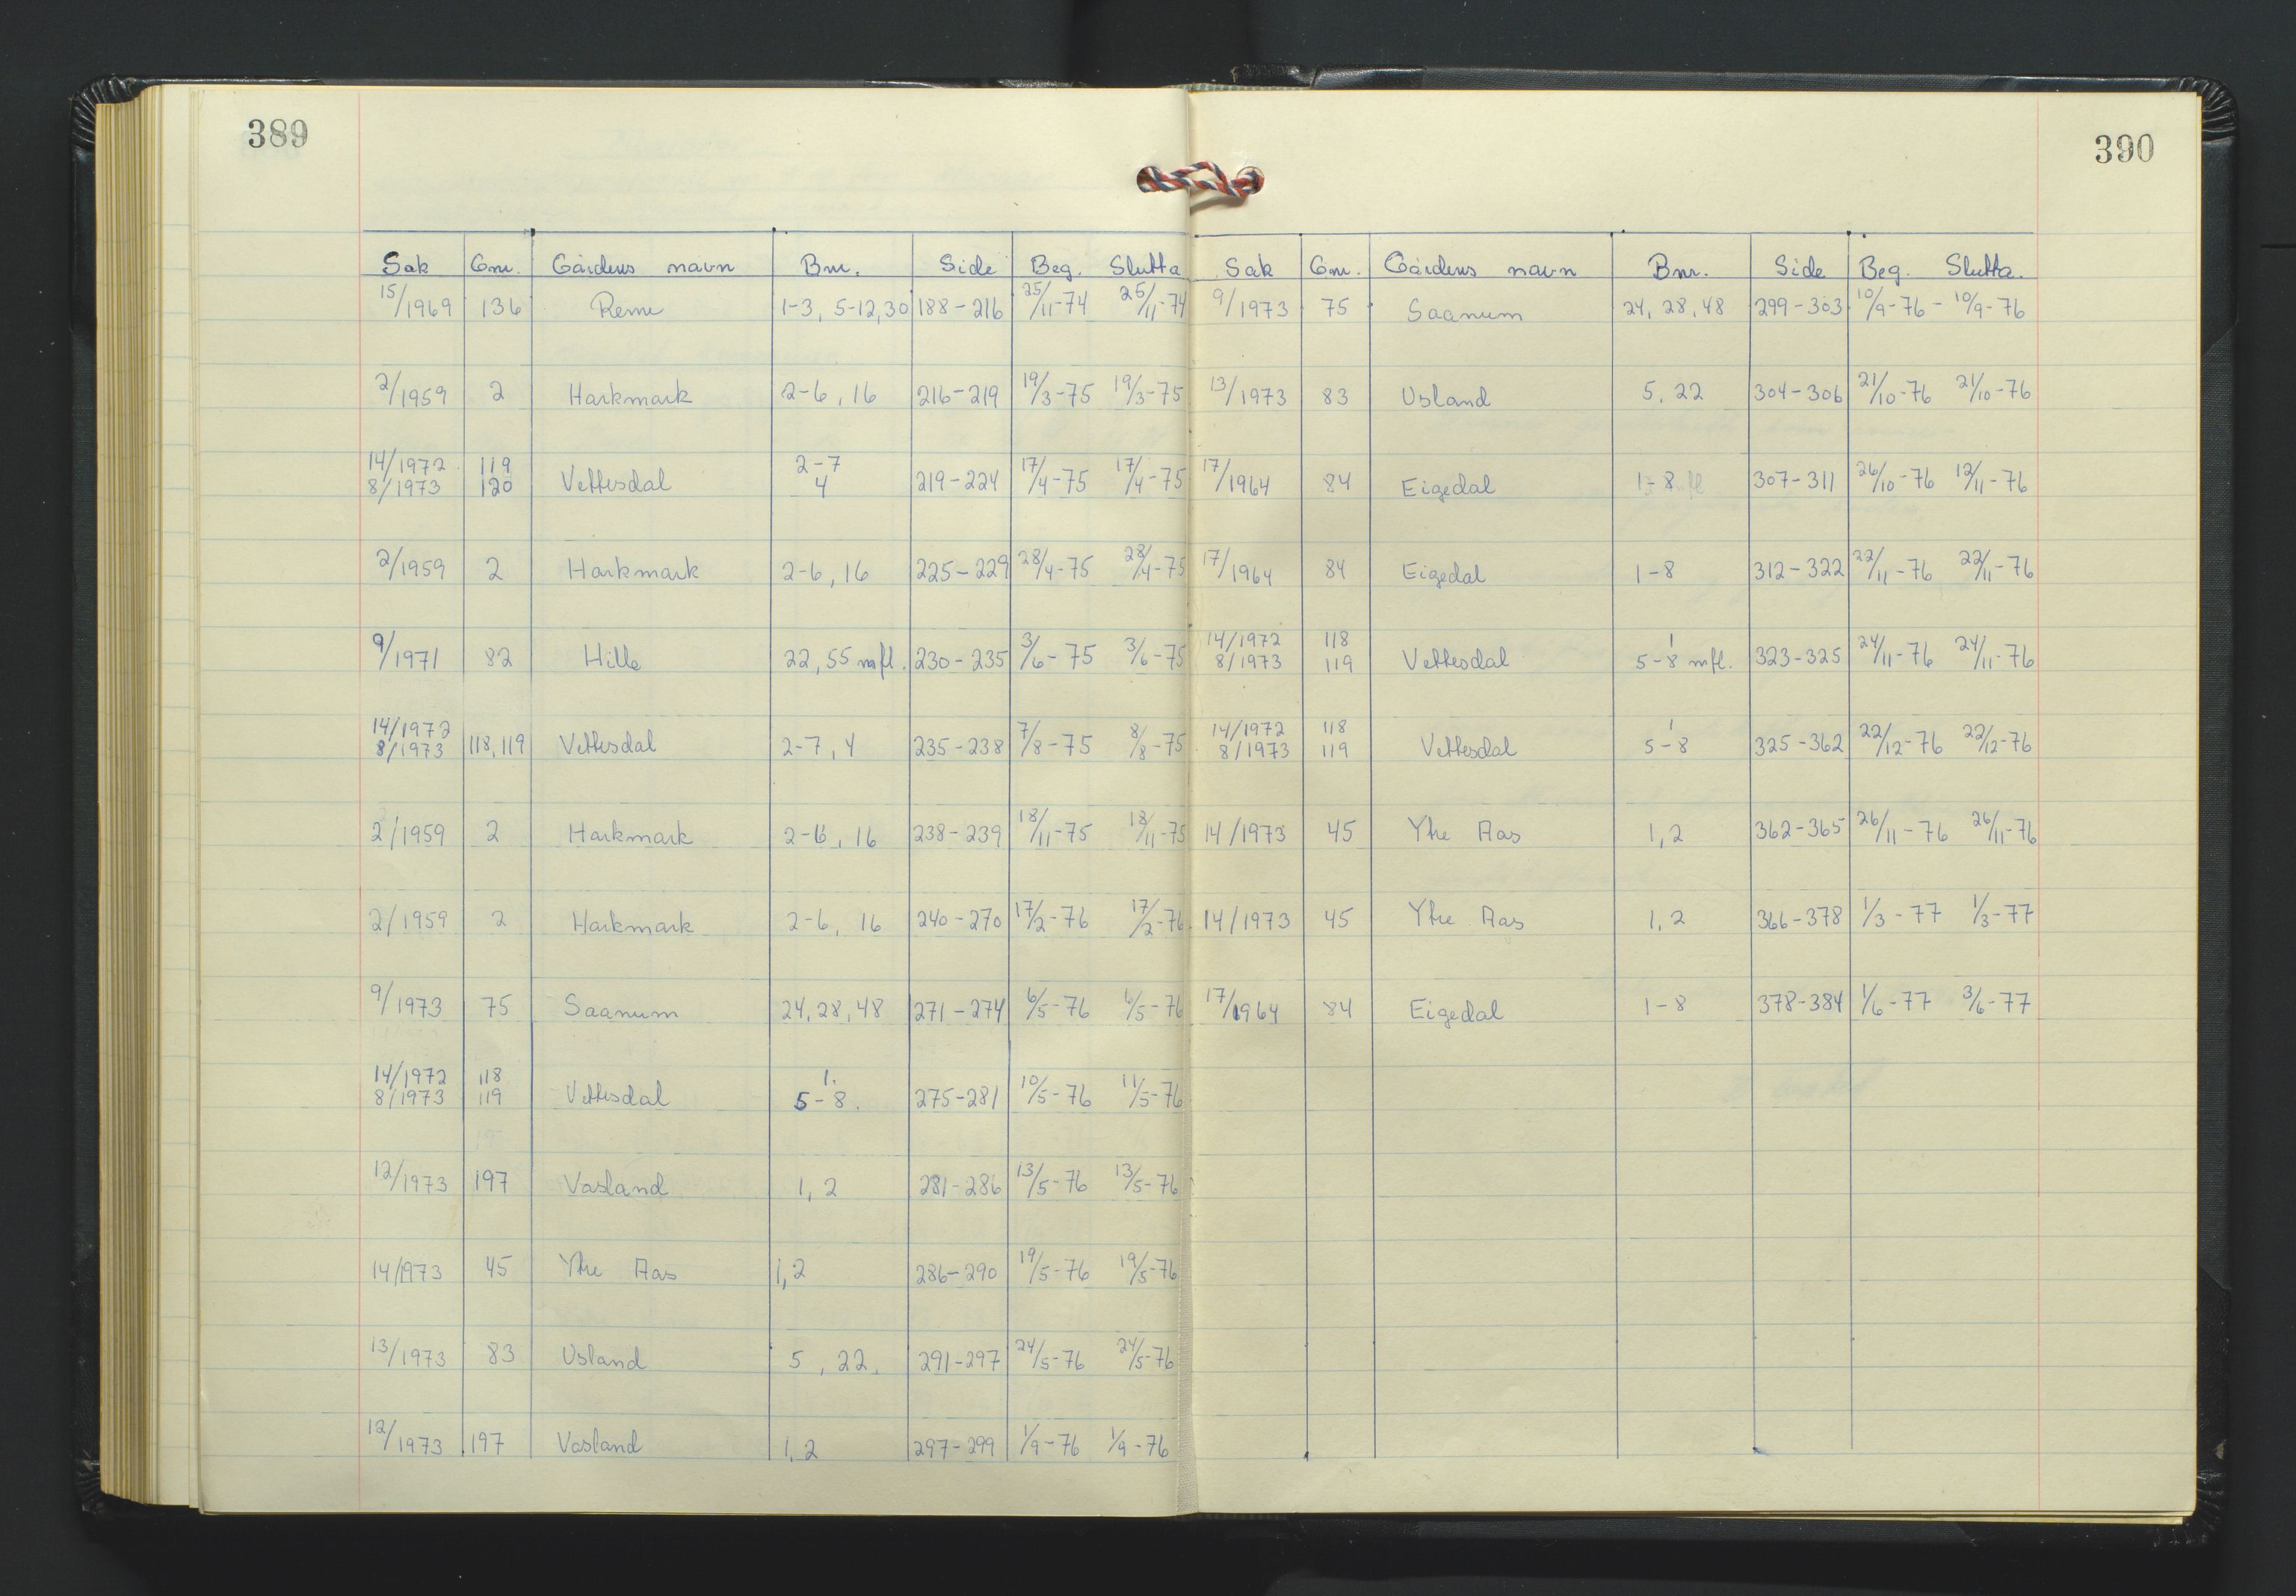 389
Sak Gnr. Gårdens navn Bnr. Side Beg. Slutta
15/1969 136 Reme 1-3, 5-12, 30 188-216 25/11-74 25/11-74
2/1959 2 Harkmark 2-6, 16 216-219 19/3-75 19/3-75
14/1972 119 2-7
8/1973 120 Vettesdal 4 219-224 17/4-75 17/4-75
2/1959 2 Harkmark 2-6, 16 225-229 28/4-75 28/4-75
9/1971 82 Hille 22, 55 mfl. 230-235 3/6-75 3/6-75
14/1972
8/1973 118, 119 Vettesdal 2-7, 4 235-238 7/8-75 8/8-75
2/1959 2 Harkmark 2-6, 16 238-239 18/11-75 18/11-75
2/1959 2 Harkmark 2-6, 16 240-270 17/2-76 17/2-76
9/1973 75 Saanum 24, 28, 48 271-274 6/5-76 6/5-76
14/1972 118 1.
8/1973 119 Vettesdal 5-8. 275-281 10/5-76 11/5-76
12/1973 197 Vasland 1, 2 281-286 13/5-76 13/5-76
14/1973 45 Ytre Aas 1, 2 286-290 19/5-76 19/5-76
13/1973 83 Usland 5, 22. 291-297 24/5-76 24/5-76
12/1973 197 Vasland 1, 2 297-299 1/9-76 1/9-76
390
Sak Gnr. Gårdens navn Bnr. Side Beg. Slutta.
9/1973 75 Saanum 24, 28, 48 299-303 10/9-76 - 10/9-76
13/1973 83 Usland 5, 22 304-306 21/10-76 21/10-76
17/1964 84 Eigedal 1-8 mfl 307-311 26/10-76 12/11-76
17/1964 84 Eigedal 1-8 312-322 22/11-76 22/11-76
14/1972 118 1
8/1973 119 Vettesdal 5-8 mfl. 323-325 24/11-76 24/11-76
14/1972 118 1
8/1973 119 Vettesdal 5-8 325-362 22/12-76 22/12-76
14/1973 45 Ytre Aas 1, 2 362-365 26/11-76 26/11-76
14/1973 45 Ytre Aas 1, 2 366-378 1/3-77 1/3-77
17/1964 84 Eigedal 1-8 378-384 1/6-77 3/6-77